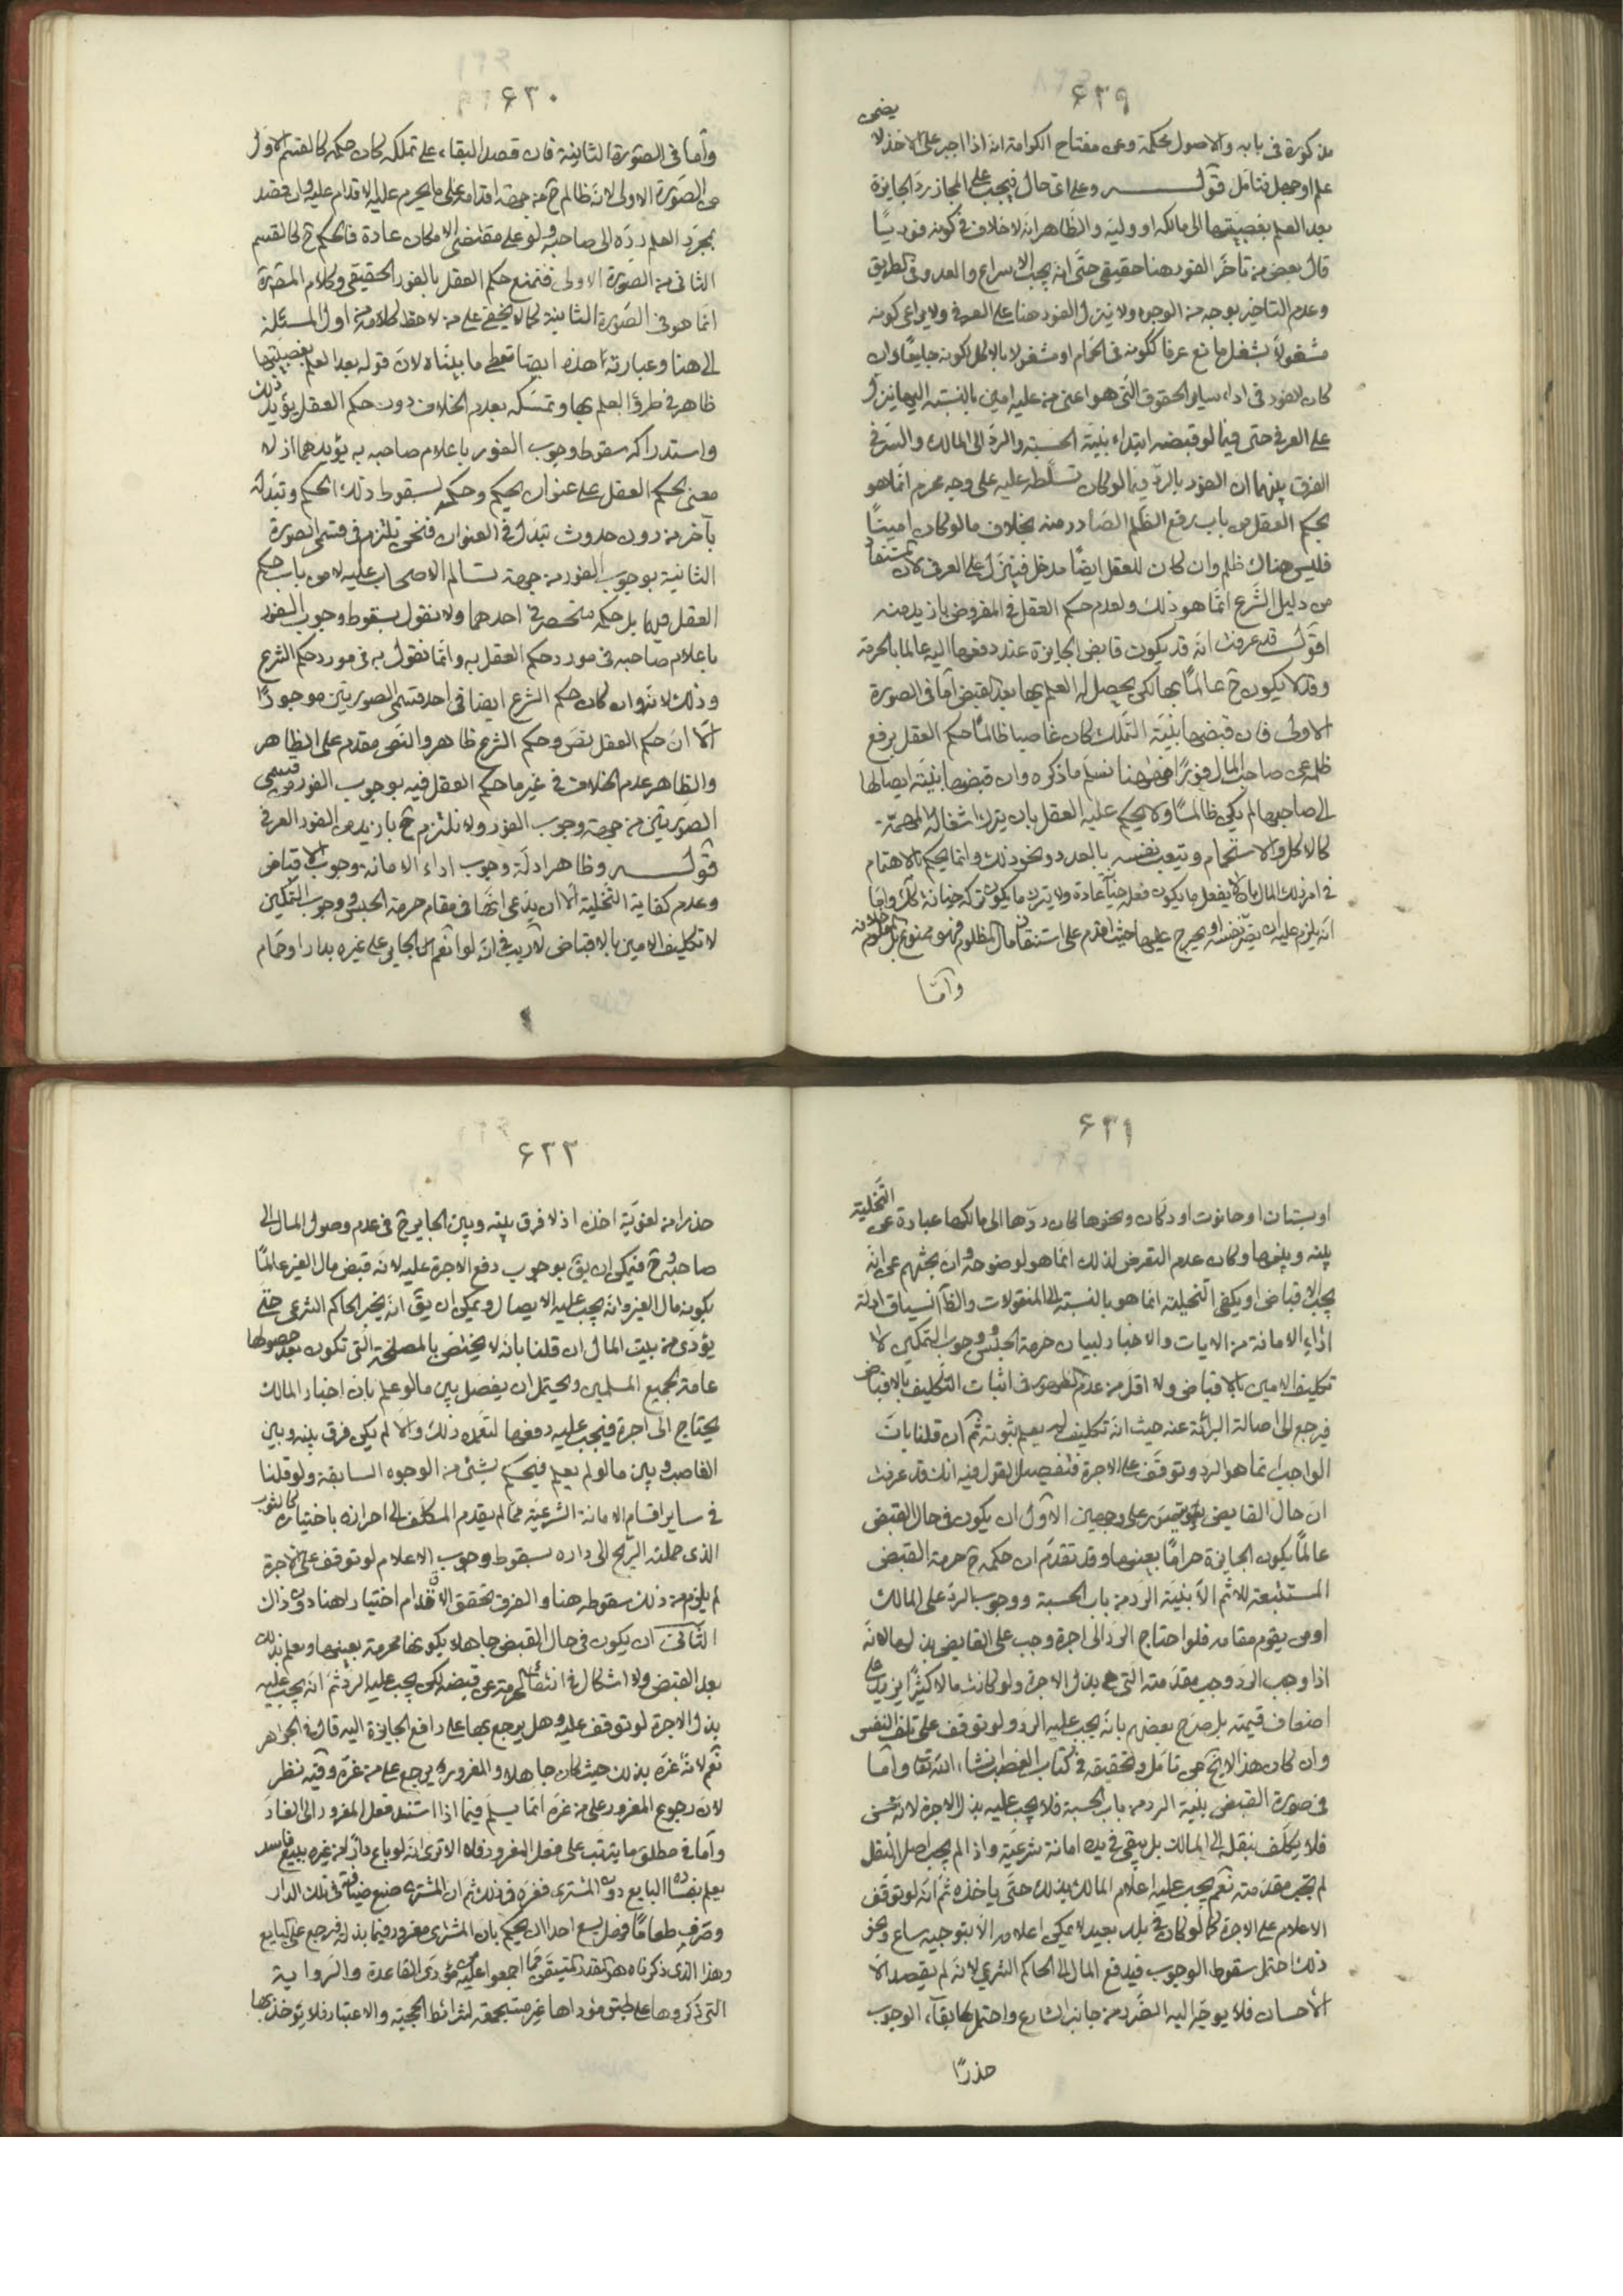 ۶۲۹
يضمن
مذكورة فى بابه والاصول محكمة وعن مفتاح الكرامة انه اذا اجبر على الاخذ لا
علم او جهل فتامل قوله وعلى اى حال فيجب على المجاز رد الجايزة
بعد العلم بغصبيتها الى مالكها او وليه والظاهر انه لا خلاف فى كونه فوريا
قال بعض من تاخر الفور هنا حقيقى حتى انه يجب الاسراع والعدو فى الطريق
وعدم التاخير بوجه من الوجوه ولا ينزل الفور هنا على العرفى ولا يراعى كونه
مشغولا بشغل مانع عرفا ككونه فى الحمام او مشغولا بالاكل لكونه جايعا وان
كان الفور فى اداء ساير الحقوق التى هو اعنى من عليه امين بالنسبة اليها ينزل
على العرفى حتى فيما لو قبضه ابتداء بنية الحسبة والرد الى المالك والسر فى
الفرق بينهما ان الفور بالرد فيما لو كان تسلطه عليه على وجه محرم انما هو
بحكم العقل من باب رفع الظلم الصادر منه بخلاف ما لو كان امينا
فليس هناك ظلم وان كان للعقل ايضا مدخل فينزل على العرفى لان المستفاد
من دليل الشرع انما هو ذلك ولعدم حكم العقل فى المفروض بازيد منه
اقول قد عرفت انه قد يكون قابض الجايزة عند دفعها اليه عالما بالحرمة
وقد لا يكون ح عالما بها لكن يحصل له العلم بها بعد القبض اما فى الصورة
الاولى فان قبضها بنية التملك كان غاصبا ظالما حكم العقل برفع
ظلمه عن صاحب المال فورا فهنا نسلم ما ذكره وان قبضها بنية ايصالها
الى صاحبها لم يكن ظالما ولا يحكم عليه العقل بان يترك اشغاله المهمة
كالاكل والاستحمام ويتعب نفسه بالعدو ونحو ذلك وانما يحكم بالاهتمام
فى امر ذلك المال بان لا يفعل ما يكون فعله خيانة عادة ولا يترك ما يكون تركه خيانة كذلك واما
انه يلزم عليه ان يضر نفسه او يحرج عليها حيث اقدم على استنقاذ مال المظلوم فهو ممنوع بل معلوم خلافه
واما
۶۳۰
واما فى الصورة الثانية فان قصد البقاء على تملكه كان حكمه كالقسم الاول
من الصورة الاولى لانه ظالم ح من جهة اقدامه على ما يحرم عليه الاقدام عليه وان قصد
بمجرد العلم رده الى صاحبه ولو على مقتضى الامكان عادة فالحكم ح كالقسم
الثانى من الصورة الاولى فنمنع حكم العقل بالفور الحقيقى وكلام المقررة
انما هو فى الصورة الثانية كما لا يخفى على من لاحظ كلامه من اول المسئلة
الى هنا وعبارته هذه ايضا تعطى ما بيناه لان قوله بعد العلم بغصبيتها
ظاهر فى طرو العلم بها وتمسكه بعدم الخلاف دون حكم العقل يؤيد ذلك
واستدراكه سقوط وجوب الفور باعلام صاحبه به يؤيدهما اذ لا
معنى لحكم العقل على عنوان بحكم وحكمه بسقوط ذلك الحكم وتبدله
بآخر من دون حدوث تبدل فى العنوان فنحن نلتزم فى قسمى الصورة
الثانية بوجوب الفور من جهة تسالم الاصحاب عليه لا من باب حكم
العقل فيهما بل حكمه منحصر فى احدهما ولا نقول بسقوط وجوب الفور
باعلام صاحبه فى مورد حكم العقل به وانما نقول به فى مورد حكم الشرع
وذلك لانه وان كان حكم الشرع ايضا فى احد قسمى الصورتين موجودا
الا ان حكم العقل نص وحكم الشرع ظاهر والنص مقدم على الظاهر
والظاهر عدم الخلاف فى غير ما حكم العقل فيه بوجوب الفور من قسمى
الصورتين من جهة وجوب الفور ولا نلتزم ح بازيد من الفور العرفى
قوله وظاهر ادلة وجوب اداء الامانة وجوب الاقباض
وعدم كفاية التخلية الا ان يدعى انها فى مقام حرمة الحبس ووجوب التمكين
لا تكليف الامين بالاقباض لا ريب فى انه لو انعم الجاير على غيره بدار او حمام
۶۳۱
او بستان او حانوت او دكان ونحوها كان ردها الى مالكها عبارة عن التخلية
بينه وبينها وكان عدم التعرض لذلك انما هو لوضوحه وان بحثهم عن انه
يجب الاقباض او يكفى التخلية انما هو بالنسبة الى المنقولات والظاهر انسياق ادلة
اداء الامانة من الايات والاخبار لبيان حرمة الحبس ووجوب التمكين لا
تكليف الامين بالاقباض ولا اقل من عدم الظهور فى اثبات التكليف بالاقباض
فيرجع الى اصالة البرائة عنه حيث انه تكليف لم يعلم ثبوته ثم ان قلنا بان
الواجب انما هو الرد وتوقف على الاجرة فتفصيل القول فيه انك قد عرفت
ان حال القابض يتصور على وجهين الاول ان يكون فى حال القبض
عالما بكون الجايزة حراما بعينها وقد تقدم ان حكمه ح حرمة القبض
المستتبعة للاثم الا بنية الرد من باب الحسبة ووجوب الرد على المالك
او من يقوم مقامه فلو احتاج الرد الى اجرة وجب على القابض بذلها لانه
اذا وجب الرد وجب مقدمته التى هى بذل الاجرة ولو كانت مالا كثيرا يزيد على
اضعاف قيمته بل صرح بعضهم بانه يجب عليه الرد ولو توقف على تلف النفس
وان كان هذا لا يخ عن تامل وتحقيقه فى كتاب الغصب انشاء الله تعالى واما
فى صورة القبض بنية الرد من باب الحسبة فلا يجب عليه بذل الاجرة لانه محسن
فلا يكلف بنقله الى المالك بل يبقى فى يده امانة شرعية واذا لم يجب اصل النقل
لم يجب مقدمته نعم يجب عليه اعلام المالك بذلك حتى ياخذه ثم انه لو توقف
الاعلام على الاجرة كما لو كان فى بلد بعيد لا يمكن اعلامه الا بتوجيه ساع ونحو
ذلك احتمل سقوط الوجوب فيدفع المال الى الحاكم الشرعى لانه لم يقصد الا
الاحسان فلا يوجه اليه الضرر من جانب الشارع واحتمل بقاء الوجوب
حذرا
۶۳۲
حذرا من لغوية اخذه اذ لا فرق بينه وبين الجاير ح فى عدم وصول المال الى
صاحبه وح فيمكن ان يق بوجوب دفع الاجرة عليه لانه قبض مال الغير عالما
بكونه مال الغير وانه يجب عليه الايصال ويمكن ان يق انه يخبر الحاكم الشرعى حتى
يؤدى من بيت المال ان قلنا بانه لا يختص بالمصلحة التى تكون بعد حصولها
عامة لجميع المسلمين ويحتمل ان يفصل بين ما لو علم بان اخبار المالك
يحتاج الى اجرة فيجب عليه دفعها لتعمده ذلك والا لم يكن فرق بينه وبين
الغاصب وبين ما لو لم يعلم فيحكم بشئ من الوجوه السابقة ولو قلنا
فى ساير اقسام الامانة الشرعية مما لم يقدم المكلف الى احرازه باختياره كالثوب
الذى حملته الريح الى داره بسقوط وجوب الاعلام لو توقف على الاجرة
لم يلزم من ذلك سقوطه هنا والفرق تحقق الاقدام اختيارا هنا دون ذاك
الثانى ان يكون فى حال القبض جاهلا بكونها محرمة بعينها وعلم بذلك
بعد القبض ولا اشكال فى انتفاء الحرمة عن قبضه لكن يجب عليه الرد ثم انه يجب عليه
بذل الاجرة لو توقف عليه وهل يرجع بها على دافع الجايزة اليه قال فى الجواهر
نعم لانه غره بذلك حيث كان جاهلا والمغرور يرجع على من غره وفيه نظر
لان رجوع المغرور على من غره انما يسلم فيما اذا استند فعل المغرور الى الغار
واما فى مطلق ما يترتب على فعل المغرور فلا الا ترى انه لو باع دارا من غيره ببيع فاسد
يعلم بفساده البايع دون المشترى فغره فى ذلك ثم ان المشترى صنع ضيافة فى تلك الدار
وصرف طعاما فهل يسع احدا ان يحكم بان المشترى مغرور فيما بذله فيرجع على البايع
وهذا الذى ذكرناه هو القدر المتيقن مما اجمعوا عليه من مؤدى القاعدة والرواية
التى ذكروها على طبق مؤداها غير مستجمعة لشرائط الحجية والاعتبار فلا يؤخذ بها